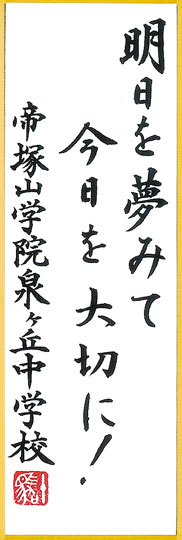 明日を夢みて
今日を大切に!
帝塚山学院泉ヶ丘中学校